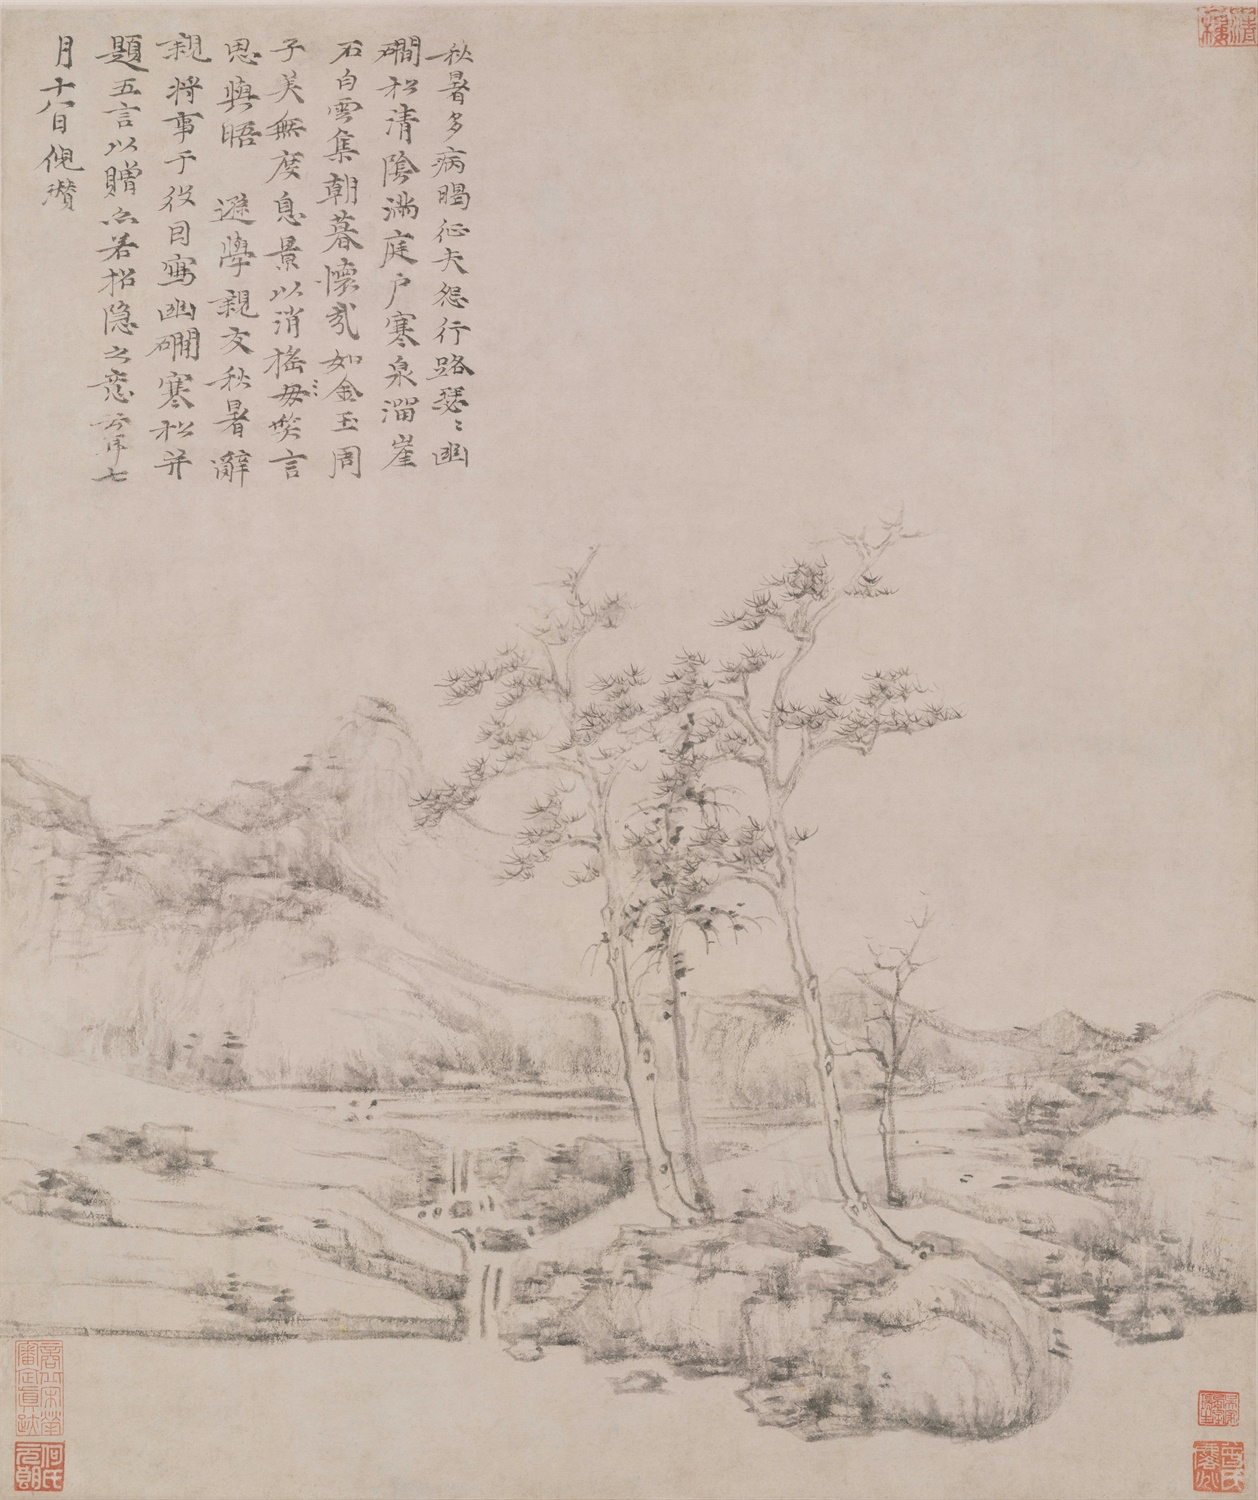 秋暑多病暍征夫怨行路瑟〻幽
磵松清陰滿庭戶寒泉溜崖
石白雲集朝暮懷哉如金玉周
子美無度息景以消搖毋㷼言
思與晤 遜學親友秋暑辭
親將事于役因寫幽磵寒松并
題五言以贈亦若招隱之意云耳七
月十八日倪瓚
何氏元朗